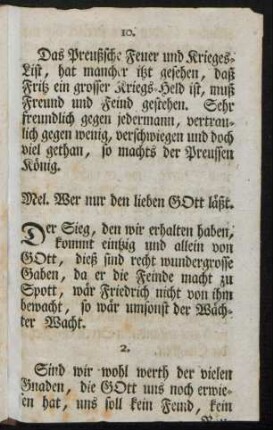 10.
Das Preußische Feuer und Krieges-
List, hat mancher itzt gesehen, daß
Fritz ein grosser Kriegs-Held ist, muß
Freund und Feind gestehen. Sehr
freundlich gegen jedermann, vertrau-
lich gegen wenig, verschwiegen und doch
viel gethan, so machts der Preussen
König.
Mel. Wer nur den lieben GOtt läßt.
Der Sieg, den wir erhalten haben,
kommt eintzig und allein von
GOtt, dieß sind recht wundergrosse
Gaben, da er die Feinde macht zu
Spott, wär Friedrich nicht von ihm
bewacht, so wär umsonst der Wäch-
ter Wacht.
2.
Sind wir wohl werth der vielen
Gnaden, die GOtt uns noch erwie-
sen hat, uns soll kein Feind, kein